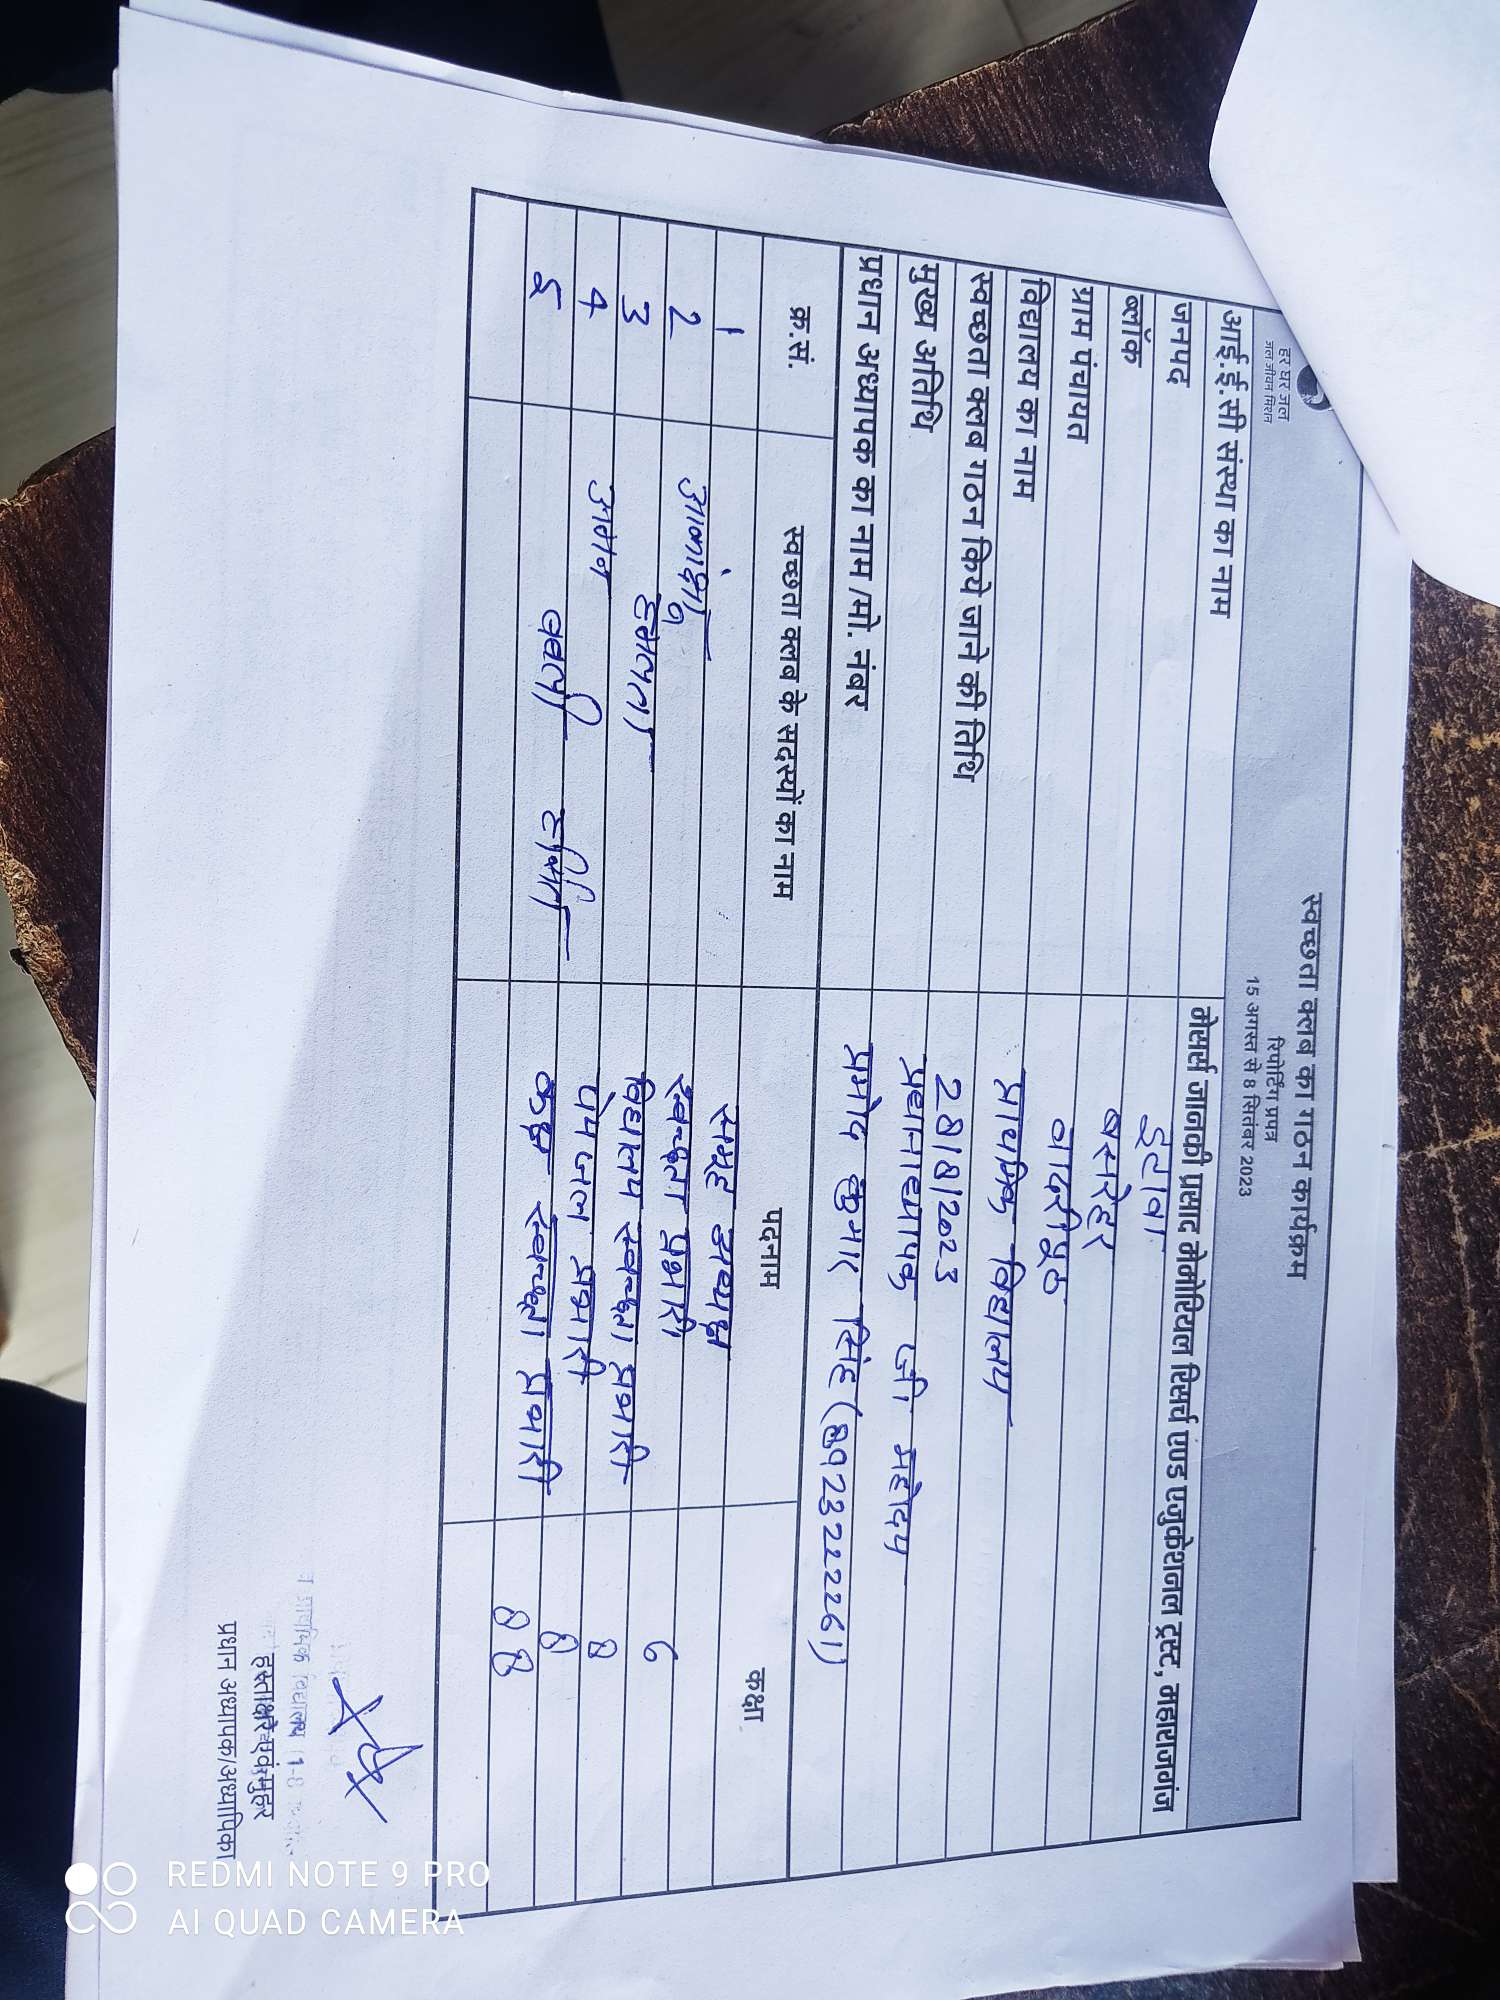 हर घर जल
जल जीवन मिशन
स्वच्छता क्लब का गठन कार्यक्रम
रिपोर्टिंग प्रपत्र
15 अगस्त से 8 सितंबर 2023
आई.ई.सी संस्था का नाम मेसर्स जानकी प्रसाद मेमोरियल रिसर्च एण्ड एजुकेशनल ट्रस्ट, महाराजगंज
जनपद इटावा
ब्लॉक बसरेहर
ग्राम पंचायत
विद्यालय का नाम प्राथमिक विद्यालय
स्वच्छता क्लब गठन किये जाने की तिथि 28/8/2023
मुख्य अतिथि प्रधानाध्यापक जी महोदय
प्रधान अध्यापक का नाम/मो. नंबर प्रमोद कुमार सिंह (8923222261)
क्र.सं. स्वच्छता क्लब के सदस्यों का नाम पदनाम कक्षा
1 समूह अध्यक्ष
2 स्वच्छता प्रभारी
3 हेमलता विद्यालय स्वच्छता प्रभारी 6
4 अमन पेयजल प्रभारी 8
5 कक्ष स्वच्छता प्रभारी 8
8 8
प्राथमिक विद्यालय 1-8
हस्ताक्षर एवं मुहर
प्रधान अध्यापक/अध्यापिका
REDMI NOTE 9 PRO
AI QUAD CAMERA